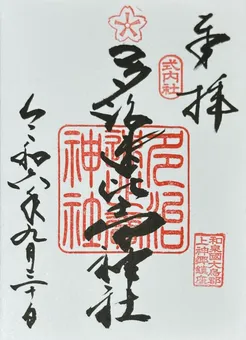 奉拝
式内社
多治速比売神社
多治
速比売
神社
和泉國大鳥郡
上神郷鎮座
令和六年九月二十日